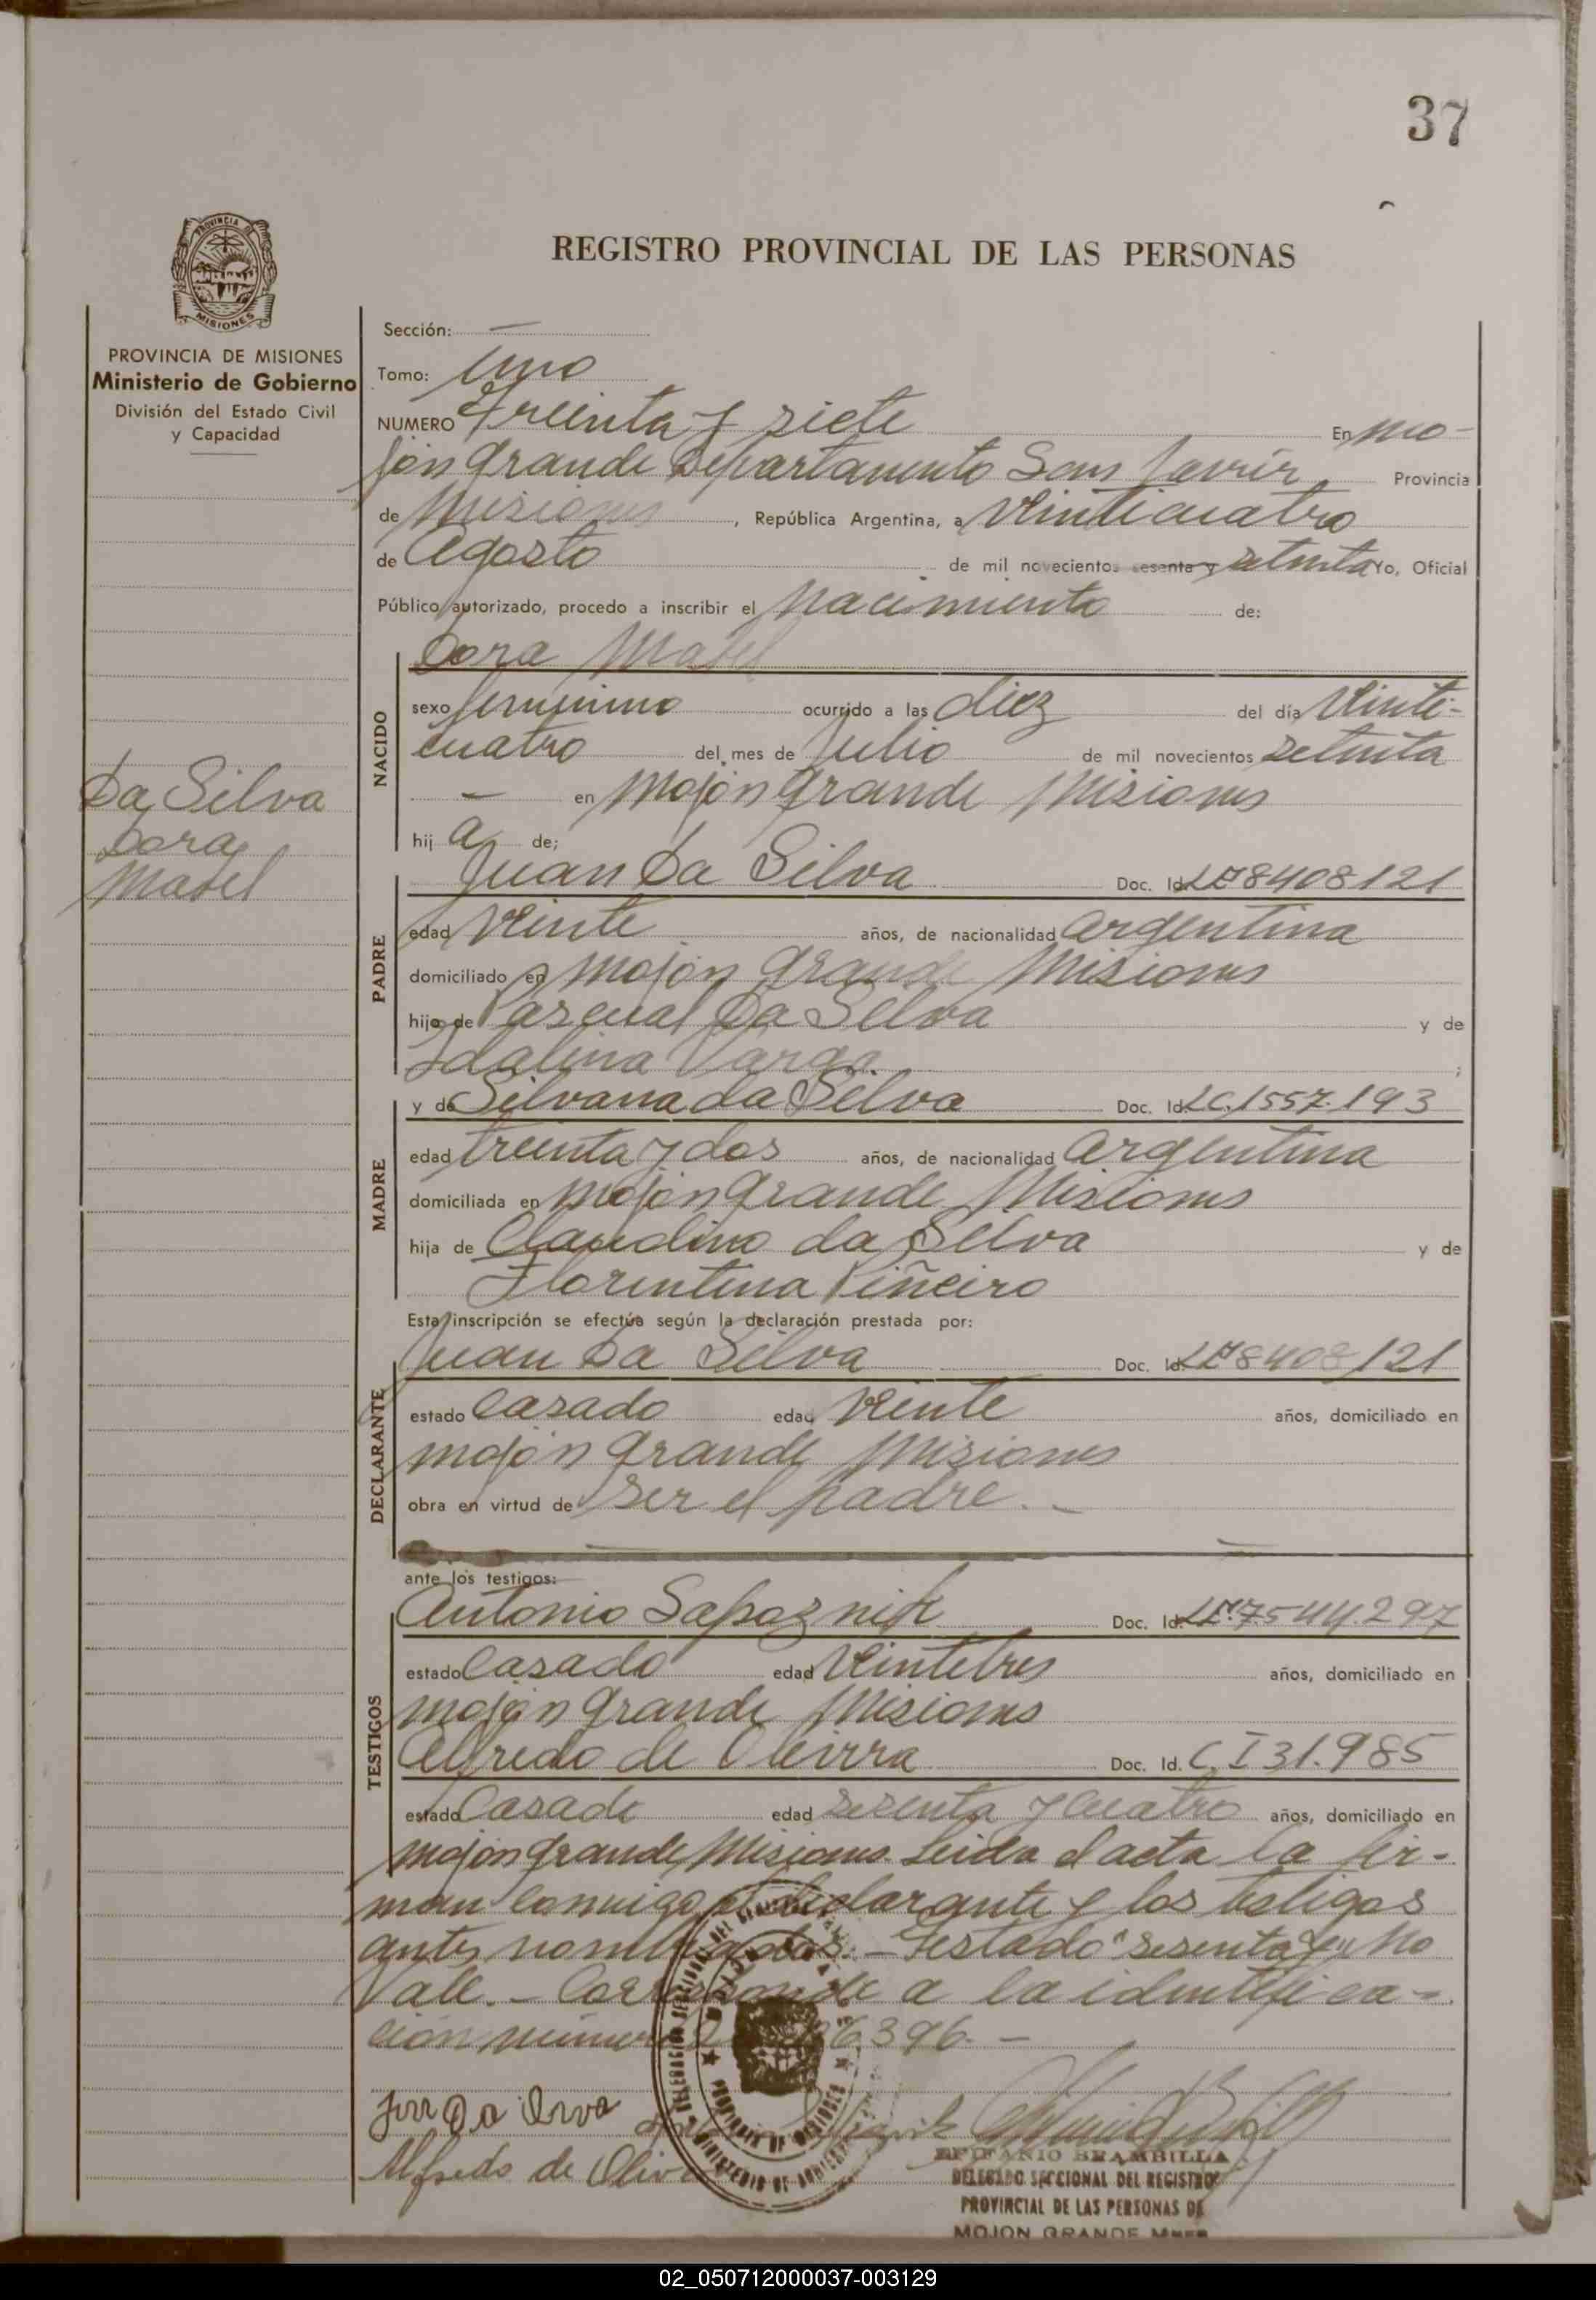 37
REGISTRO PROVINCIAL DE LAS PERSONAS
PROVINCIA DE
MISIONES
PROVINCIA DE MISIONES
Ministerio de Gobierno
División del Estado Civil
y Capacidad
Da Silva
Dora
Mabel
Sección: —
Tomo: Uno
NUMERO Treinta y siete En Mo-
jón Grande Departamento San Javier Provincia
de Misiones, República Argentina, a Veinticuatro
de Agosto de mil novecientos sesenta y setenta Yo, Oficial
Público autorizado, procedo a inscribir el Nacimiento de:
Dora Mabel
NACIDO
sexo femenino ocurrido a las diez del día Veinti-
cuatro del mes de Julio de mil novecientos setenta
— en Mojón Grande Misiones
hij a de;
PADRE
Juan Da Silva Doc. Id. LE 8408121
edad Veinte años, de nacionalidad Argentina
domiciliado en Mojón Grande Misiones
hijo de Pascual Da Silva y de
Idalina Varga ;
MADRE
y de Silvana da Silva Doc. Id. LC.1557.193
edad treinta y dos años, de nacionalidad Argentina
domiciliada en Mojón Grande Misiones
hija de Claudino da Silva y de
Florentina Piñeiro
Esta inscripción se efectúa según la declaración prestada por:
DECLARANTE
Juan Da Silva Doc. Id. LE 8408121
estado Casado edad Veinte años, domiciliado en
Mojón Grande Misiones
obra en virtud de ser el padre. —
ante los testigos:
TESTIGOS
Antonio Sapoznik Doc. Id. LE.7.544.297
estado Casado edad Veintetres años, domiciliado en
Mojón Grande Misiones
Alfredo de Oleivra Doc. Id. C I 31.985
estado Casado edad sesenta y cuatro años, domiciliado en
Mojón Grande Misiones. Leida el acta la fir-
man conmigo el declarante y los testigos
antes nombrados. — Testado "sesenta y" No
Vale. — Corresponde a la identifica-
ción número 6396. —
Alfredo de Oliv
EPIFANIO BRAMBILLA
DELEGADO SECCIONAL DEL REGISTRO
PROVINCIAL DE LAS PERSONAS DE
MOJON GRANDE
02_050712000037-003129